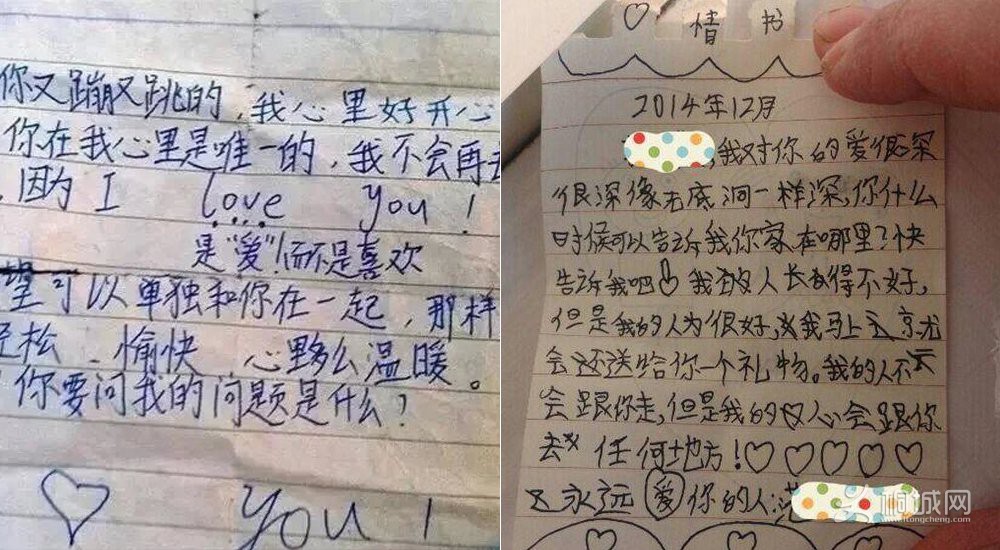 你又蹦又跳的，我心里好开心
你在我心里是唯一的，我不会再去
因为 I love you !
是"爱"!而不是喜欢
望可以单独和你在一起，那样
轻松、愉快 心里多么温暖。
你要问我的问题是什么？
♡ you !
♡ 情 书
2014年12月
,我对你的爱很深
很深像无底洞一样深,你什么
时候可以告诉我你家在哪里?快
告诉我吧 我人长得不好,
但是我的人为很好,我马上
会还送给你一个礼物。我的人不
会跟你走,但是我的心会跟你
去 任何地方!♡♡♡♡♡
永远爱你的人:
桐城网
itongcheng.com